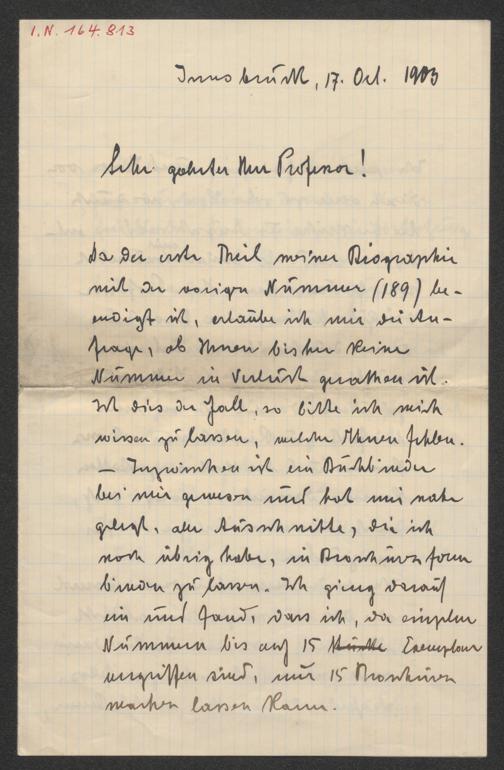 I.N. 164.813
Innsbruck, 17. Oct. 1903
Sehr geehrter Herr Professor!
Da der erste Theil meiner Biographie
mit der vorigen Nummer (189) be-
endigt ist, erlaube ich mir die An-
frage, ob Ihnen bisher keine
Nummer in Verlust gerathen ist.
Ist dies der Fall, so bitte ich mich
wissen zu lassen, welche Ihnen fehlen.
— Inzwischen ist ein Buchbinder
bei mir gewesen und hat mir nahe
gelegt, aller Ausschnitte, die ich
noch übrig habe, in Broschürenform
binden zu lassen. Ich gieng darauf
ein und fand, dass ich, da einzelne
Nummern bis auf 15 Stücke Exemplare
vergriffen sind, nur 15 Broschüren
machen lassen kann.